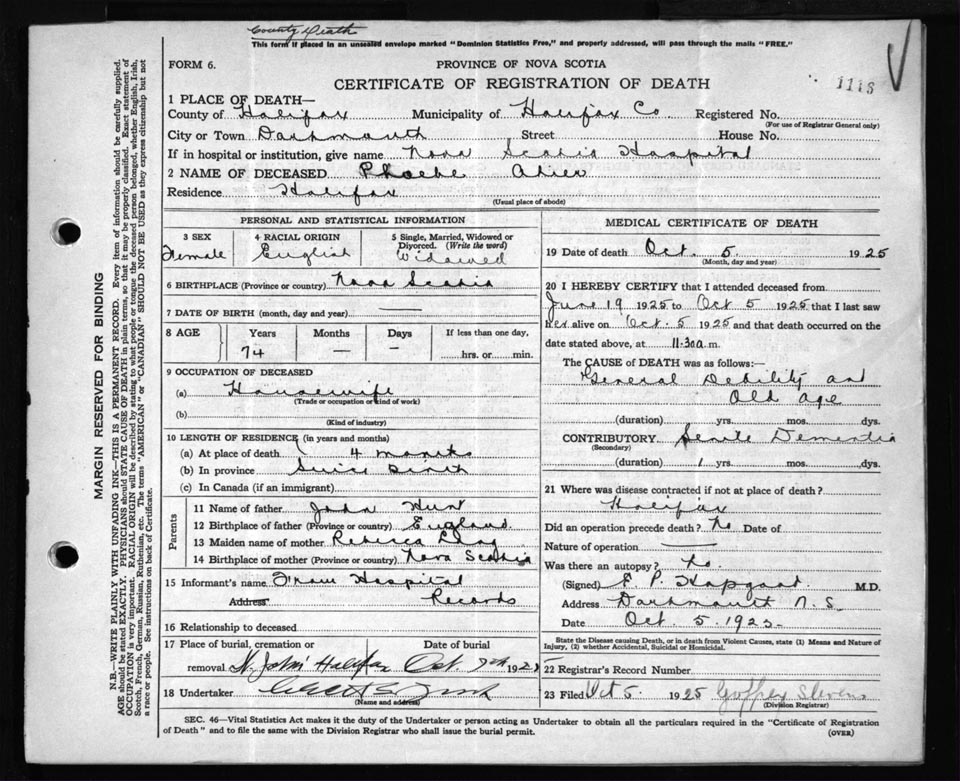 County Death
This form if placed in an unsealed envelope marked "Dominion Statistics Free," and properly addressed, will pass through the mails "FREE."
FORM 6.
PROVINCE OF NOVA SCOTIA
CERTIFICATE OF REGISTRATION OF DEATH
1118
1 PLACE OF DEATH—
County of Halifax Municipality of Halifax Co Registered No.
(For use of Registrar General only)
City or Town Dartmouth Street House No.
If in hospital or institution, give name Nova Scotia Hospital
2 NAME OF DECEASED Phoebe
Residence Halifax
(Usual place of abode)
PERSONAL AND STATISTICAL INFORMATION
3 SEX
Female
4 RACIAL ORIGIN
English
5 Single, Married, Widowed or Divorced. (Write the word)
Widowed
6 BIRTHPLACE (Province or country) Nova Scotia
7 DATE OF BIRTH (month, day and year) —
8 AGE Years Months Days If less than one day,
74 — — hrs. or min.
9 OCCUPATION OF DECEASED
(a) Housewife
(Trade or occupation or kind of work)
(b)
(Kind of industry)
10 LENGTH OF RESIDENCE (in years and months)
(a) At place of death 4 months
(b) In province Since Birth
(c) In Canada (if an immigrant)
Parents
11 Name of father John Hunt
12 Birthplace of father (Province or country) England
13 Maiden name of mother Rebecca
14 Birthplace of mother (Province or country) Nova Scotia
15 Informant's name From Hospital
Address Records
16 Relationship to deceased
17 Place of burial, cremation or Date of burial
removal St. John Halifax Oct. 7th 192
18 Undertaker
(Name and address)
MEDICAL CERTIFICATE OF DEATH
19 Date of death Oct. 5 1925
(Month, day and year)
20 I HEREBY CERTIFY that I attended deceased from
June 19 1925 to Oct 5 1925 that I last saw
her alive on Oct. 5 1925 and that death occurred on the
date stated above, at 11.30 a.m.
The CAUSE OF DEATH was as follows:—
General Debility and
Old age
(duration) yrs. mos. dys.
CONTRIBUTORY Senile Dementia
(Secondary)
(duration) 1 yrs. mos. dys.
21 Where was disease contracted if not at place of death?
Halifax
Did an operation precede death? No Date of
Nature of operation —
Was there an autopsy? No.
(Signed) F. P. M.D.
Address Dartmouth N.S.
Date Oct. 5. 1925
State the Disease causing Death, or in death from Violent Causes, state (1) Means and Nature of Injury, and (2) whether Accidental, Suicidal or Homicidal.
22 Registrar's Record Number
23 Filed Oct 5 1925 Goffrey Stevens
(Division Registrar)
SEC. 46—Vital Statistics Act makes it the duty of the Undertaker or person acting as Undertaker to obtain all the particulars required in the "Certificate of Registration
of Death" and to file the same with the Division Registrar who shall issue the burial permit.
(OVER)
MARGIN RESERVED FOR BINDING
N.B.—WRITE PLAINLY WITH UNFADING INK—THIS IS A PERMANENT RECORD. Every item of information should be carefully supplied.
AGE should be stated EXACTLY. PHYSICIANS should STATE CAUSE OF DEATH in plain terms, so that it may be properly classified. Exact statement of
OCCUPATION is very important. RACIAL ORIGIN will be described by stating to what people or tongue the deceased person belonged, whether English, Irish,
Scotch, French, German, Russian, Ruthenian, etc. The terms "AMERICAN" or "CANADIAN" SHOULD NOT BE USED as they express citizenship but not
a race or people. See instructions on back of Certificate.